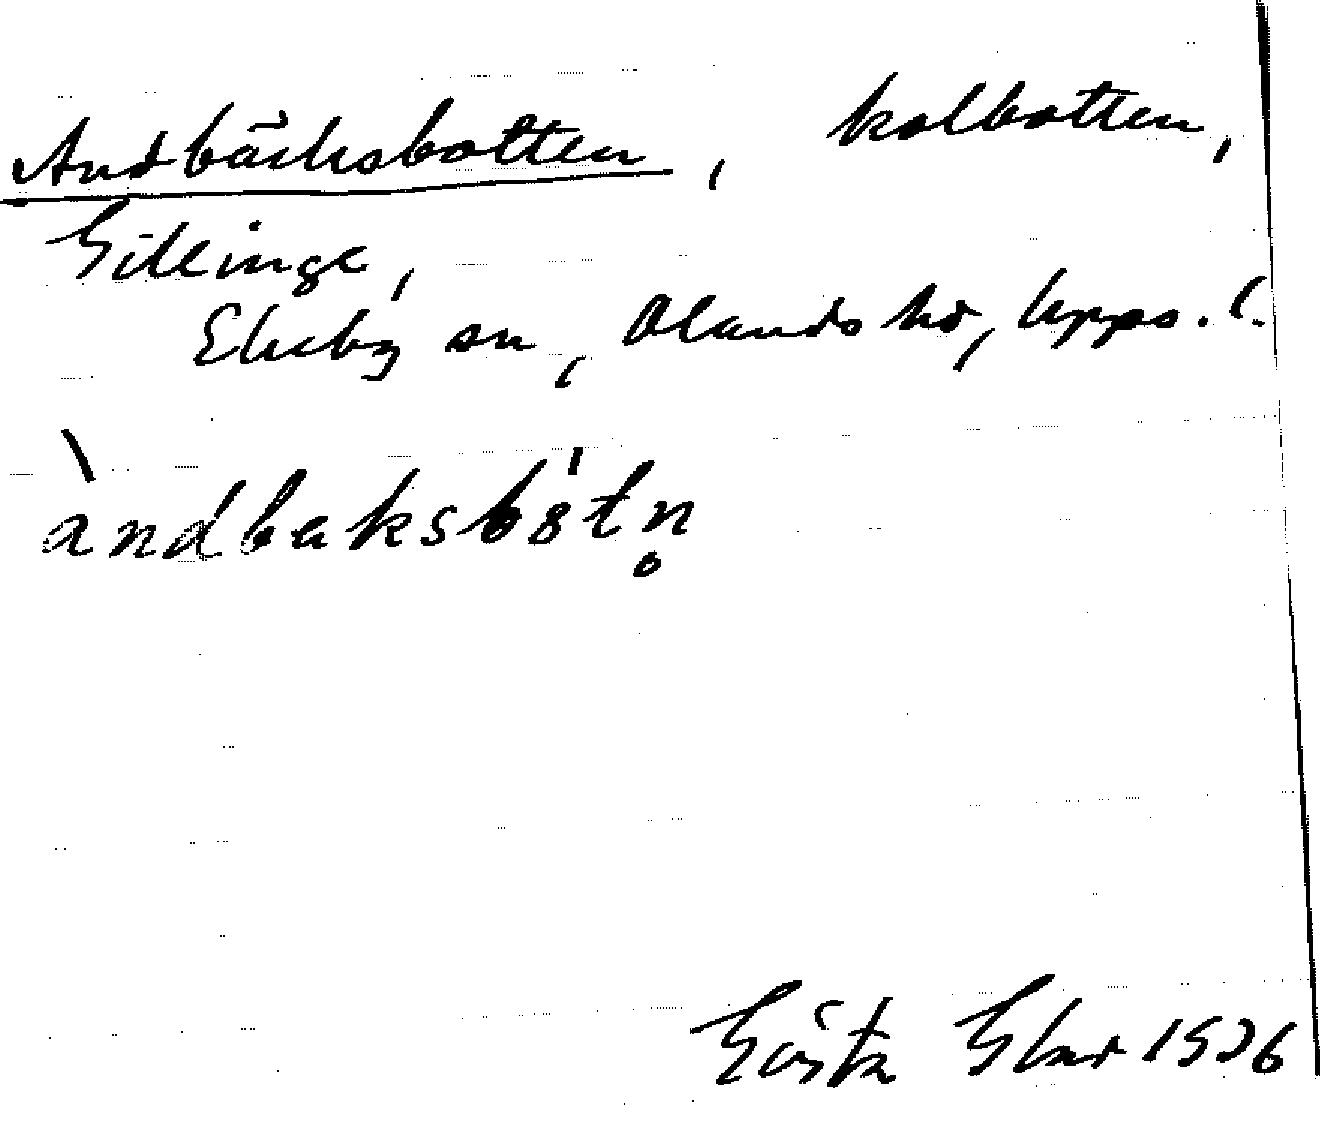 Andbäcksbotten, kolbotten,
Gillinge,
Ekeby sn, Olands hd, Upps. l.
àndbaksbȣ̍tn̥
Gösta 1926